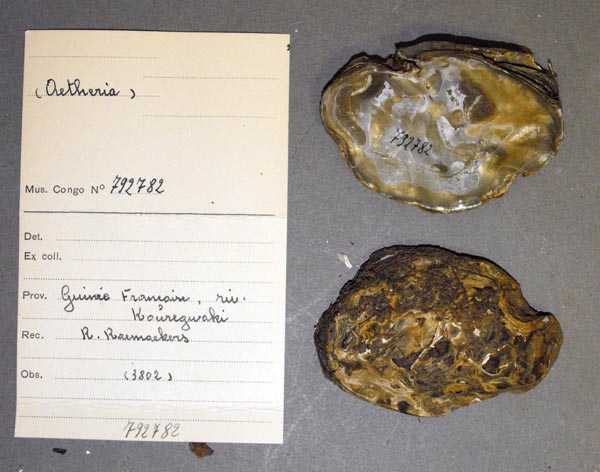 (Aetheria)
Mus. Congo Nº 792782
Det.
Ex coll.
Prov. Guinée Francaise, riv.
Kouregwaki
Rec. R. Raemaekers
Obs. (3802)
792782
792782